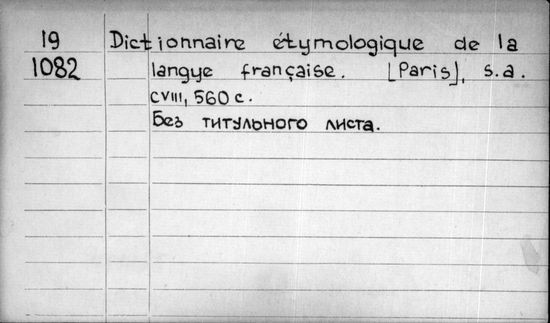 19 Dictionnaire étymologique de la
1082 langye française. [Paris], s.a.
CVIII, 560 c.
Без титульного листа.